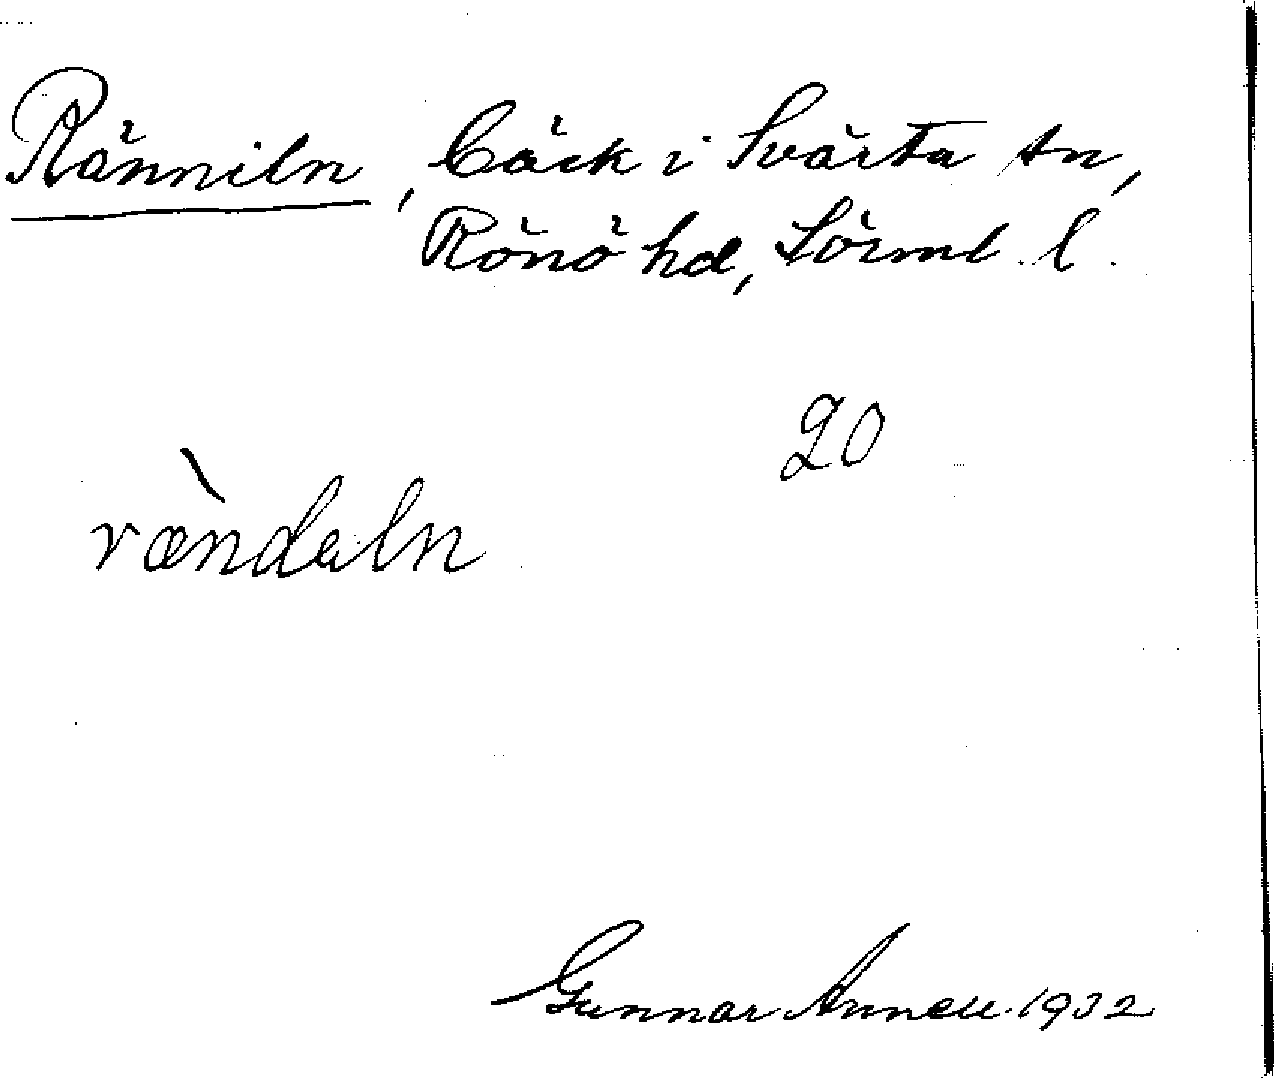 Ränniln, bäck i Svärta sn,
Rönö hd, Sörml. l.
20
vændəln
Gunnar Annell 1932